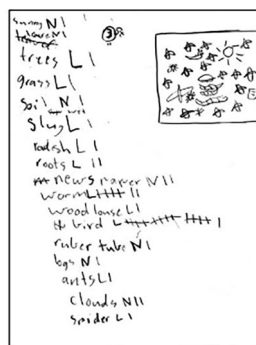 sunny N I
trees L I
grass L I
soil N I
slug L I
③
radish L I
roots L II
news paper N II
worm L IIII
wood louse L I
bird L IIII IIII I
ruber tube N I
logs N I
ants L I
clouds N II
spider L I